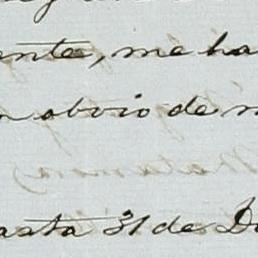 ente, me ha
n obvio de n
asta 31 de D